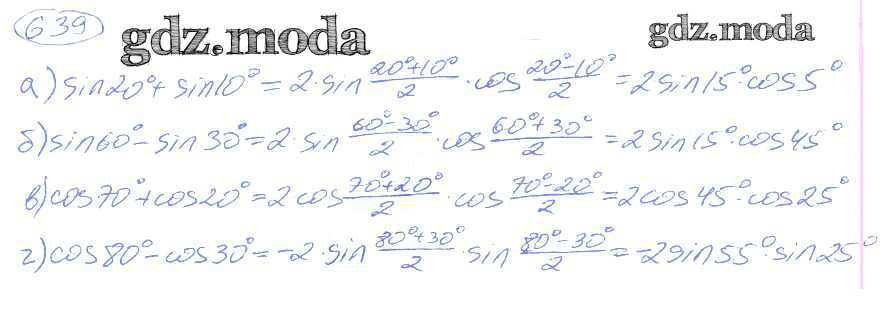 639 gdz.moda gdz.moda
а) sin20°+ sin10° = 2·sin (20°+10°)/2 · cos (20°-10°)/2 = 2sin15°·cos5°
б) sin60°- sin30° = 2·sin (60°-30°)/2 · cos (60°+30°)/2 = 2sin15°·cos45°
в) cos70°+cos20° = 2cos (70°+20°)/2 · cos (70°-20°)/2 = 2cos45°·cos25°
г) cos80°-cos30° = -2·sin (80°+30°)/2 · sin (80°-30°)/2 = -2sin55°·sin25°